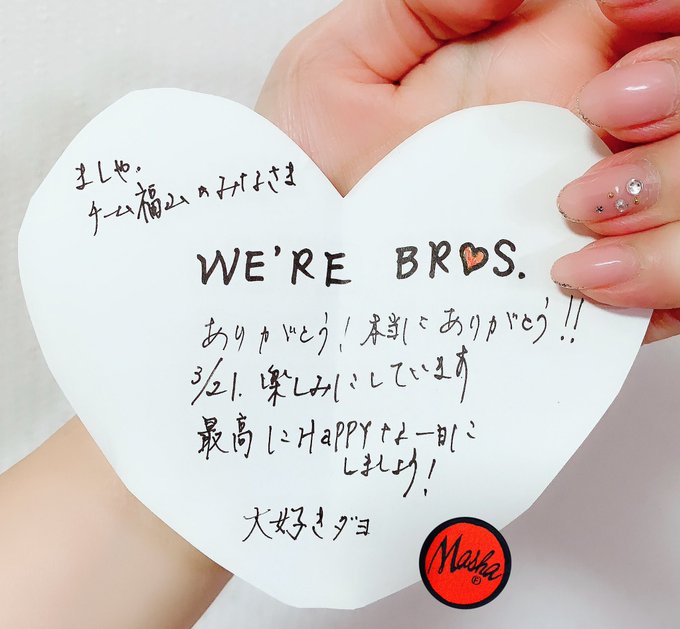 ましゃ.
チーム福山のみなさま
WE'RE BR♥S.
ありがとう!本当にありがとう!!
3/21.楽しみにしています
最高にHAPPYな一日に
しましょう!
大好きダヨ
Masha